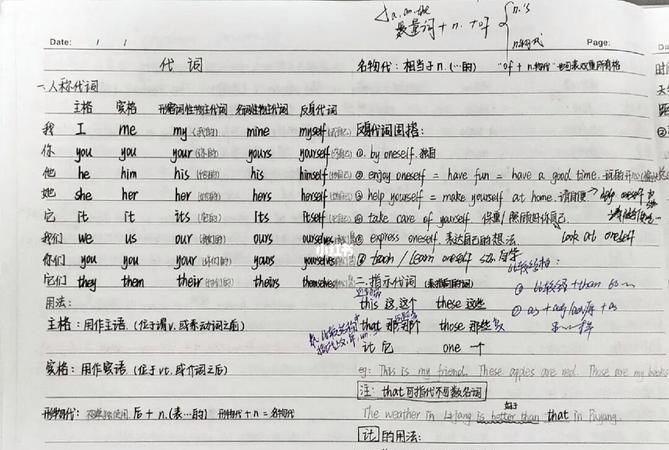 a. an. the
数量词 + n. + of { n.'s
n.物代
Date: / /
Page:
代词
一.人称代词
主格 宾格 形容词性物主代词 名词性物主代词 反身代词
我 I me my (我的) mine myself
你 you you your (你的) yours yourself
他 he him his his himself
她 she her her hers herself
它 it it its Its Itself
我们 we us our ours ourselves
你们 you you your yours yourselves
它们 they them their theirs themselves
用法:
主格:用作主语.(位于谓v.或系动词之前)
宾格:用作宾语(位于vt.或介词之后)
形物代: 后+n.(表…的) 形物代+n=名物代
名物代:相当于n.(…的) "of + n.物代"
反身代词固搭:
①. by oneself.
②. enjoy oneself = have fun = have a good time.
③. help yourself = make yourself at home. 请自便 help oneself
④. take care of yourself 保重/照顾好你自己
look at oneself
⑤. express oneself 表达自己的想法
⑥ teach/learn oneself sth. 自学
二.指示代词
this 这.这个 these 这些
that 那.那个 those 那些
it 它 one 一个
① 比较级+than
② as + adj/adv原 + as
eg: This is my friend. These apples are red. Those are my books
注: that可指代不可数名词
The weather in Lijang is better than that in Puyang.
it 的用法: